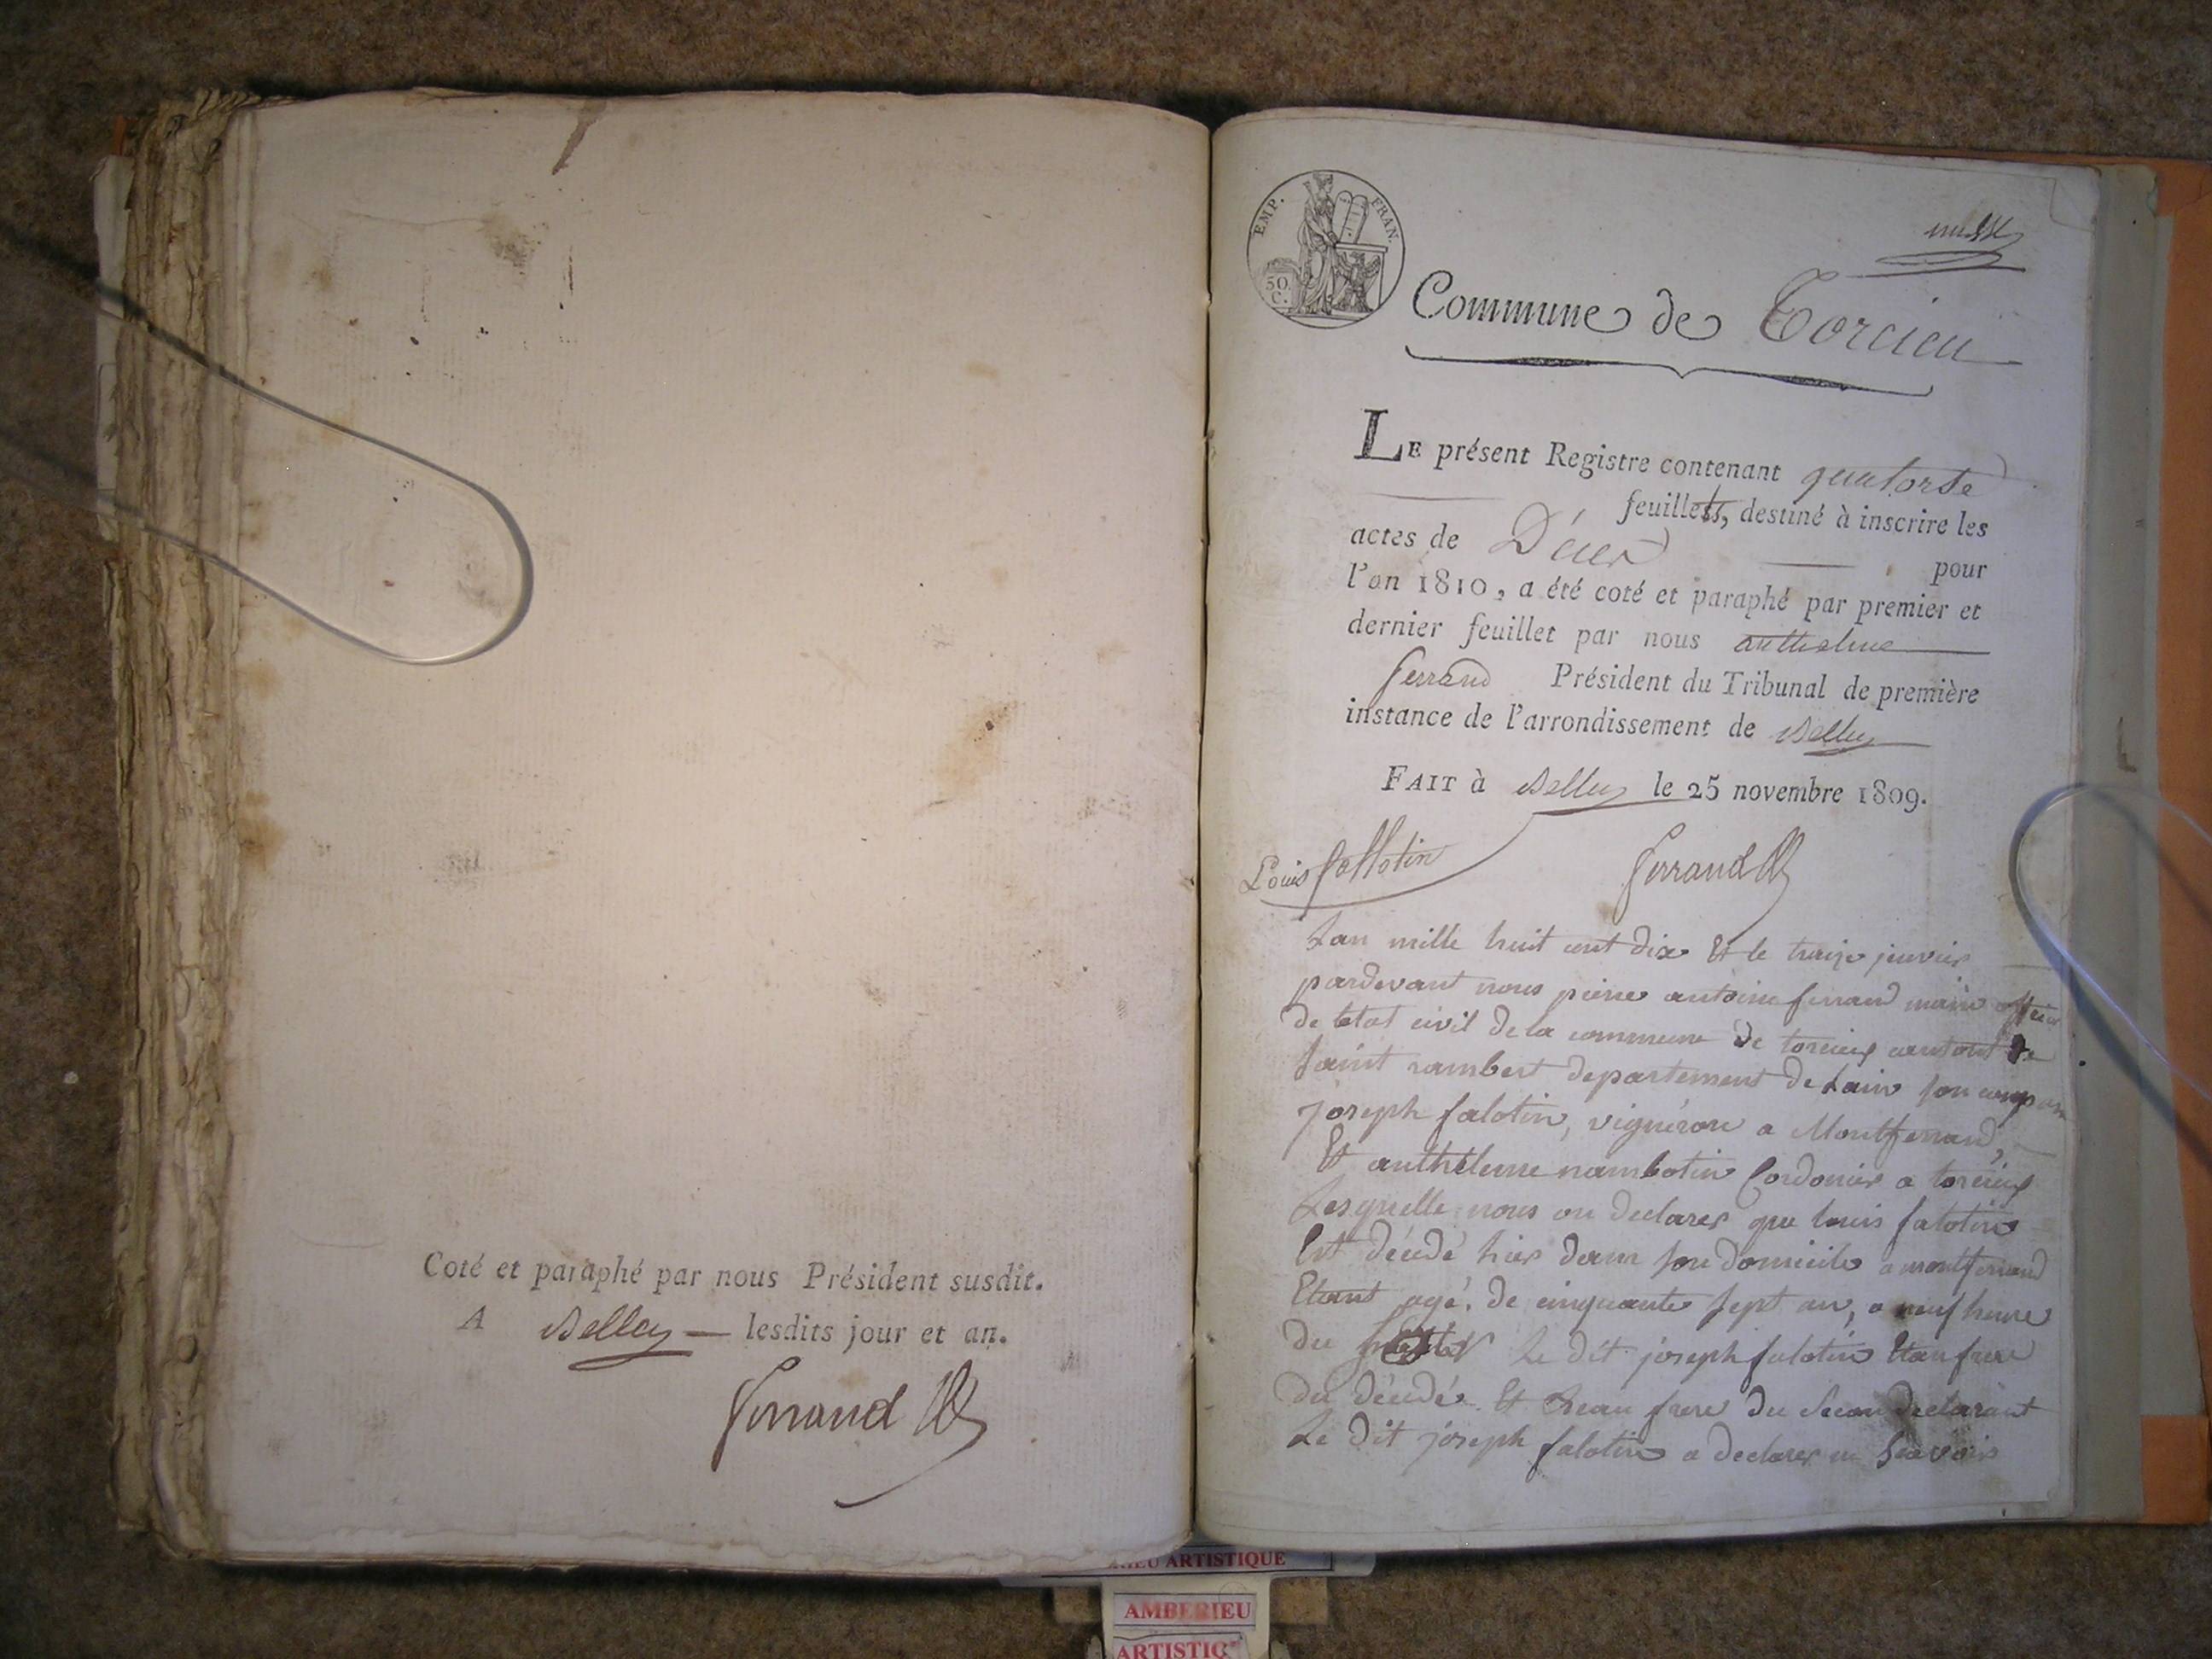 Coté et paraphé par nous Président susdit.
A Belley lesdits jour et an.
Ferrand
EMP. FRAN.
50.
C.
Commune de Torcieu
LE présent Registre contenant quatorse
feuillets, destiné à inscrire les
actes de Décès pour
l'an 1810, a été coté et paraphé par premier et
dernier feuillet par nous anthelme
ferrand Président du Tribunal de première
instance de l'arrondissement de Belley
FAIT à Belley le 25 novembre 1809.
Louis fallotin
Ferrand
Lan mille huit cent dix Et le treize janvier
pardevant nous pierre antoine ferrand maire officier
de letat civil de la commune de torcieu canton de
saint rambert departement de Lain son comparu
joseph falotin, vigneron a Montferrand,
Et anthelme nambotin Cordonier a torcieu
Lesquelle nous on declarer que louis falotin
Est décédé hier dans son domicile a montferrand
Etant agé de cinquante sept an, a neuf heure
du Le dit joseph falotin Etan frere
du décédé Et Beau frere du Secon declarant
Le dit joseph falotin a declarer ne Seavoir
AMBERIEU ARTISTIQUE
AMBERIEU
ARTISTIQ